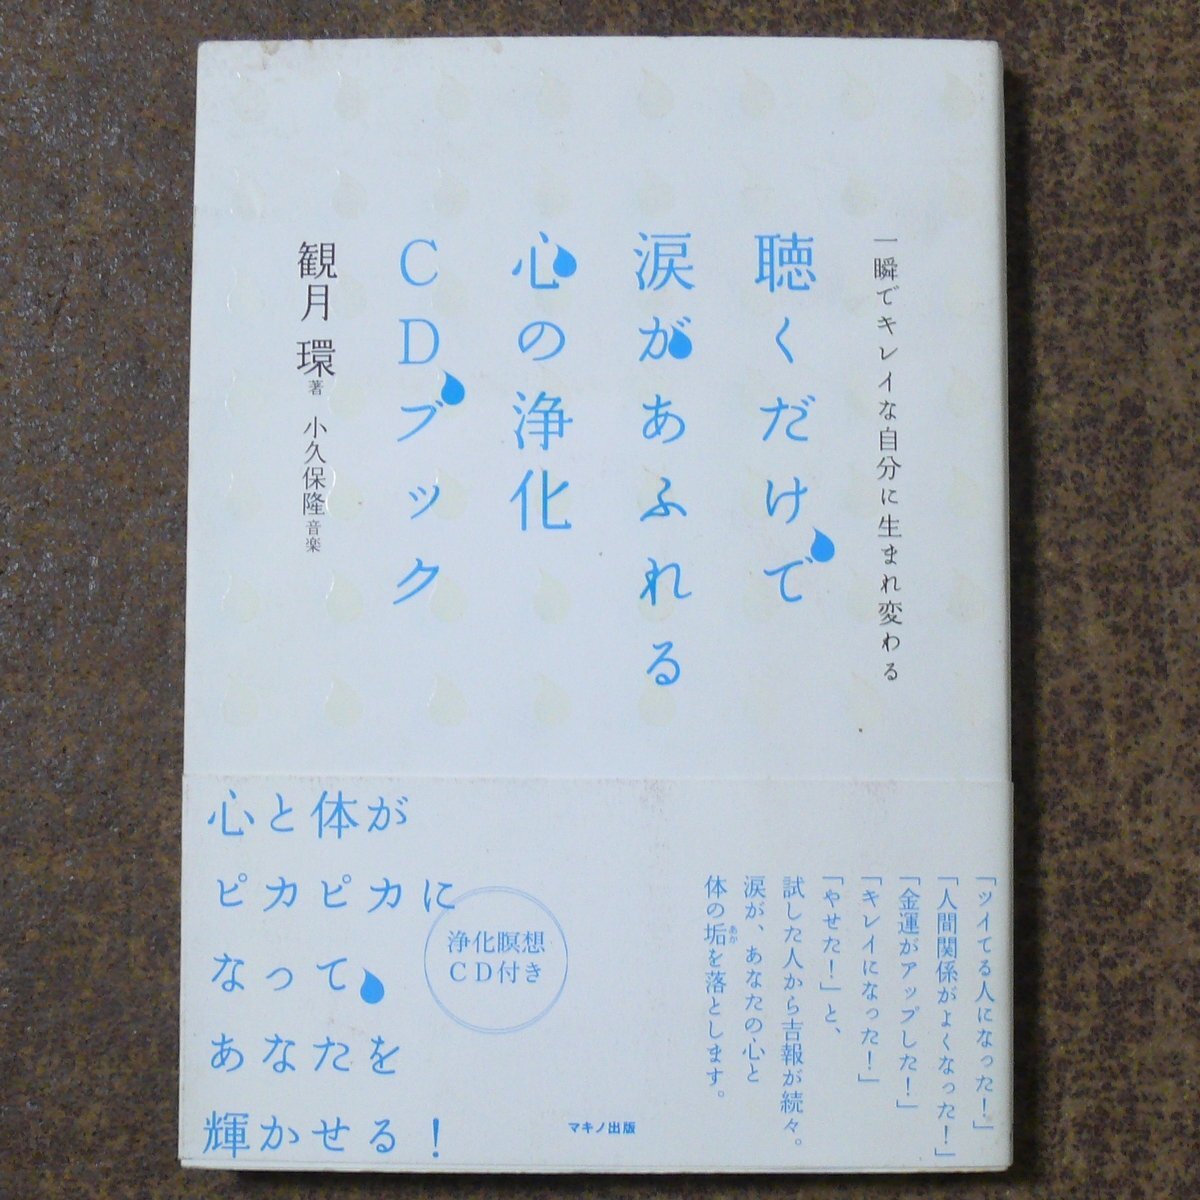 一瞬でキレイな自分に生まれ変わる
聴くだけで
涙があふれる
心の浄化
CDブック
観月 環 著
小久保隆 音楽
心と体が
ピカピカに
なって
あなたを
輝かせる！
浄化瞑想
CD付き
「ツイてる人になった！」
「人間関係がよくなった！」
「金運がアップした！」
「キレイになった！」
「やせた！」と、
試した人から吉報が続々。
涙が、あなたの心と
体の垢を落とします。
あか
マキノ出版